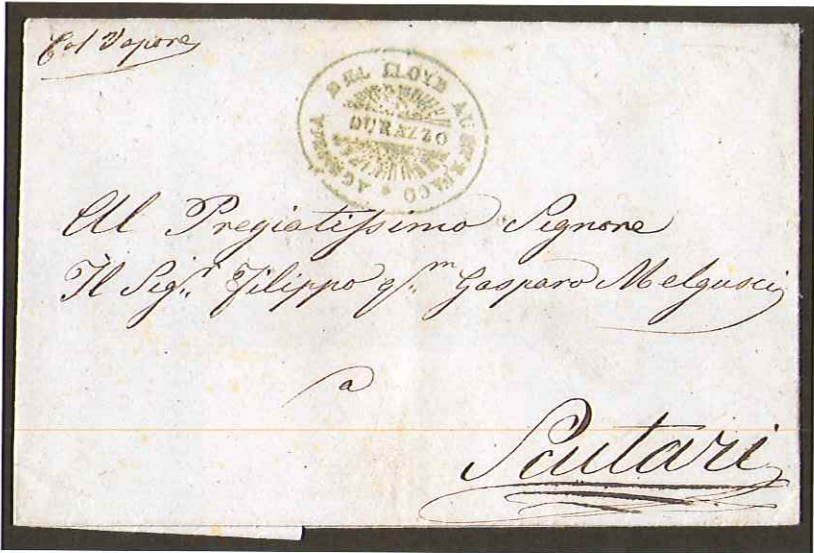 Col Vapore
AGENZIA DEL LLOYD AUSTRIACO
DURAZZO
Al Pregiatissimo Signore
Il Sigr. Filippo qm. Gasparo Melgusci
a
Scutari